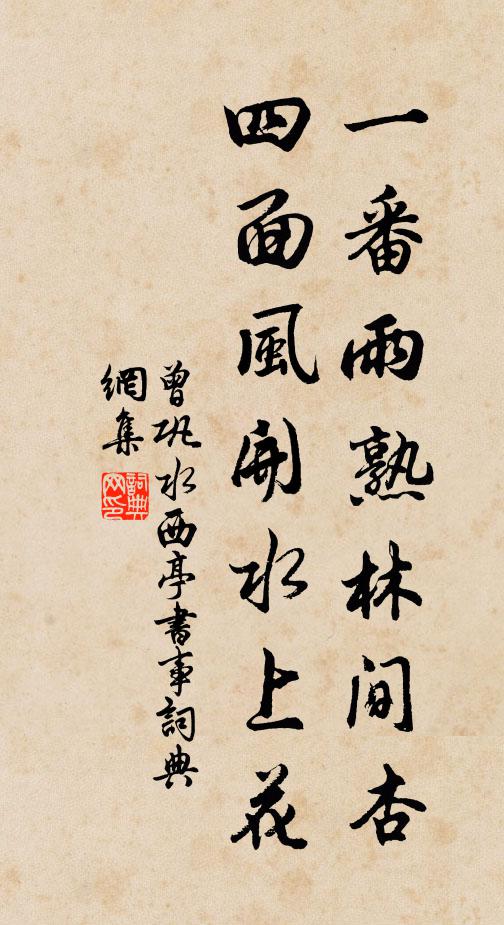 一番雨熟林間杏
四面風開水上花
曾巩水西亭書事詞典
網集
詞典
网印